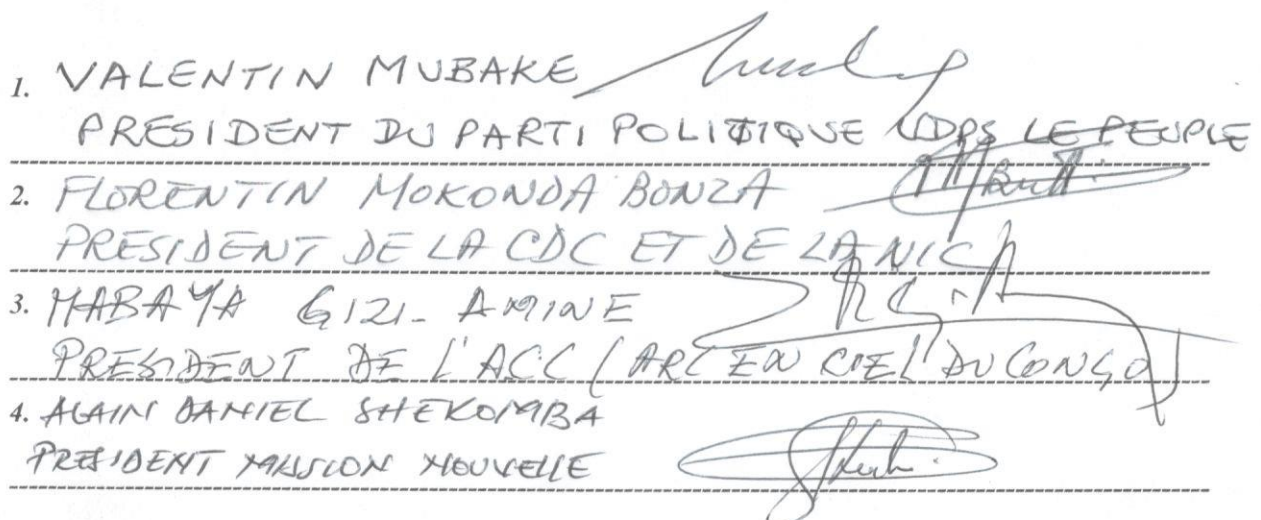 1. VALENTIN MUBAKE
PRESIDENT DU PARTI POLITIQUE UDPS LE PEUPLE
2. FLORENTIN MOKONDA BONZA
PRESIDENT DE LA CDC ET DE LA NICA
3. MABAYA GIZI-AMINE
PRESIDENT DE L'ACC (ARC EN CIEL DU CONGO)
4. ALAIN DANIEL SHEKOMBA
PRESIDENT MISSION NOUVELLE